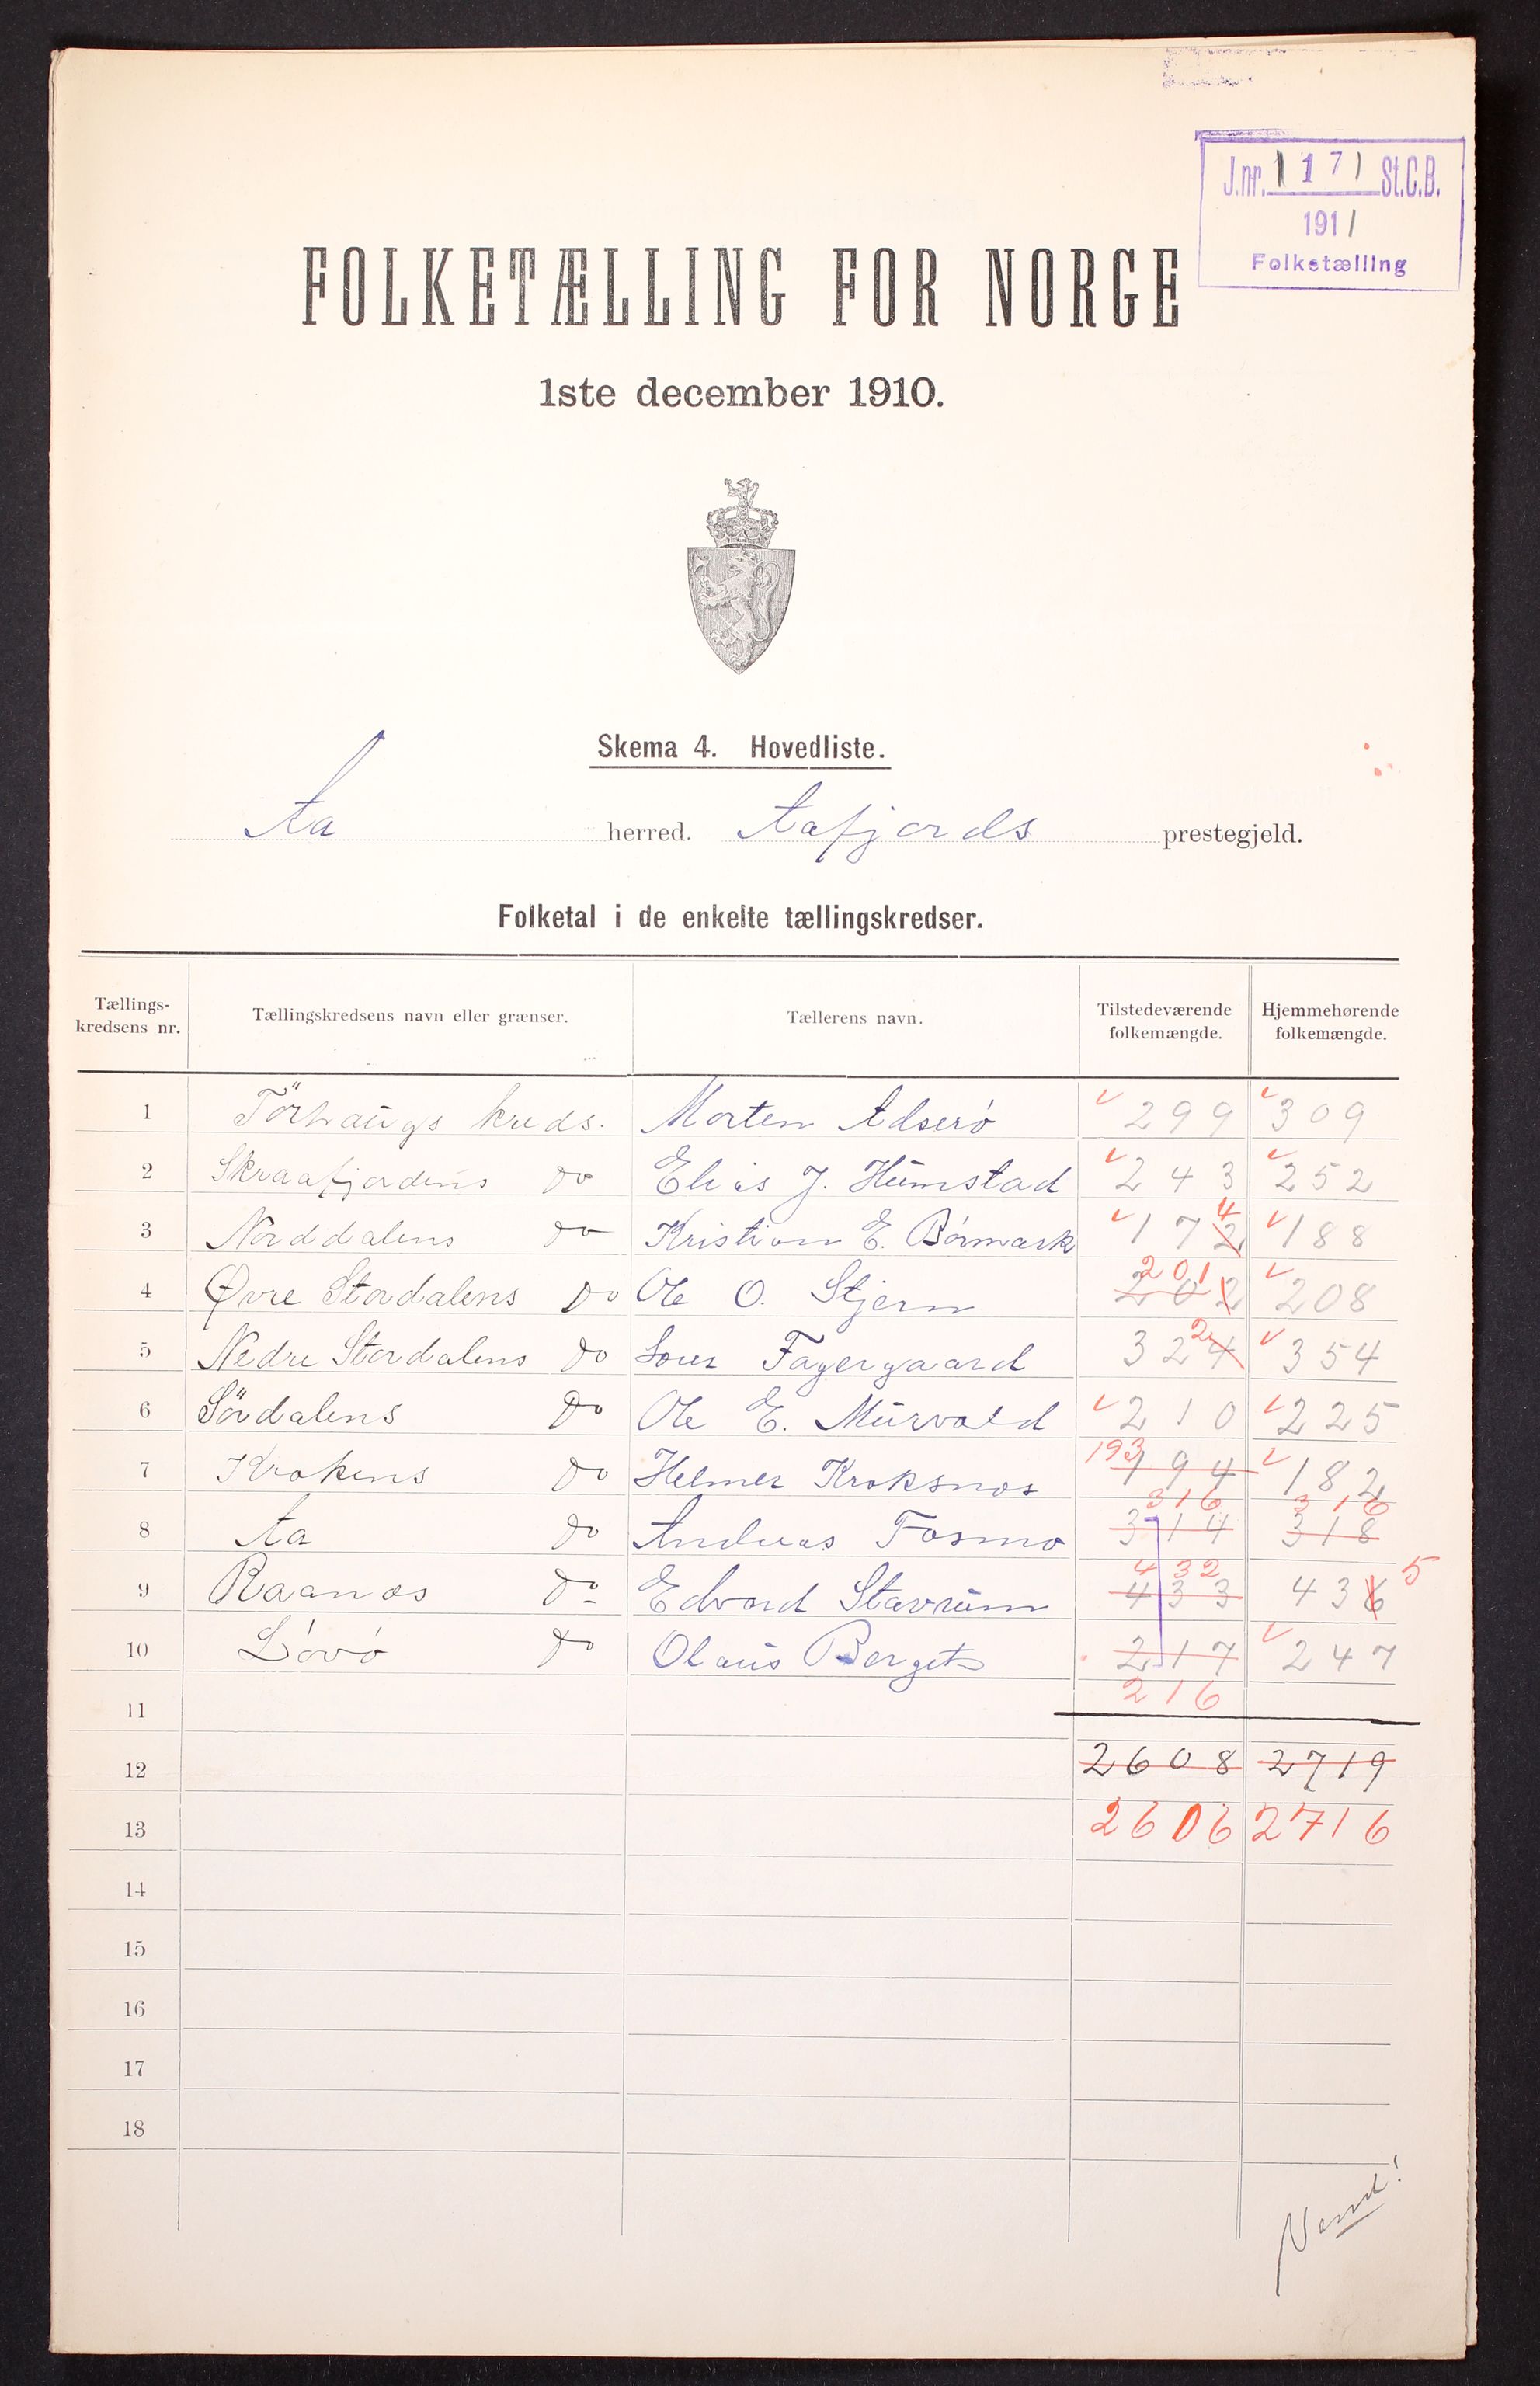 J.nr. 1171 St.C.B.
1911
Folketælling
FOLKETÆLLING FOR NORGE
1ste december 1910.
Skema 4. Hovedliste.
Aa herred. Aafjords prestegjeld.
Folketal i de enkelte tællingskredser.
Tællings-kredsens nr. Tællingskredsens navn eller grænser. Tællerens navn. Tilstedeværende folkemængde. Hjemmehørende folkemængde.
1 Törhaugs kreds. Morten Adserö 299 309
2 Skraafjordens do Elias J. Humstad 243 252
3 Norddalens do Kristian E. Börmark 172 4 188
4 Øvre Stordalens do Ole O. Stjern 202 201 208
5 Nedre Stordalens do Fagergaard 324 2 354
6 Sördalens do Ole E. Murvold 210 225
7 Krokens do Helmer Kroksnes 194 193 182
8 Aa do Andreas Fosmo 314 316 318 316
9 Raanæs do Edvard Stavrum 433 432 436 5
10 Lövö do Olaus Berget 217 216 247
11
12 2608 2719
13 2606 2716
14
15
16
17
18
Vend!